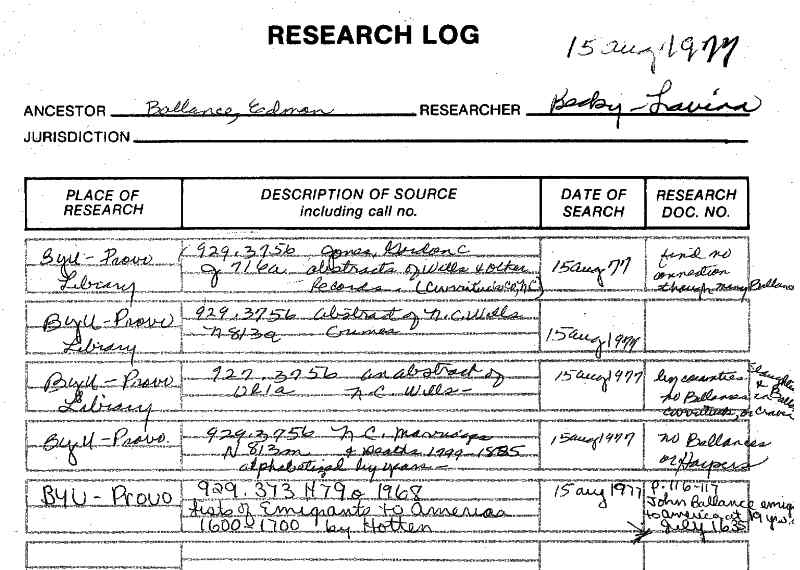 RESEARCH LOG
15 aug 1977
ANCESTOR Ballance, Edmon RESEARCHER Becky - Lavina
JURISDICTION
PLACE OF RESEARCH
DESCRIPTION OF SOURCE including call no.
DATE OF SEARCH
RESEARCH DOC. NO.
ByU - Provo
Library
929.3756
J716a abstracts of Wills & Other
Records - (Currituck Co, N.C.)
15 aug 77
find no
connection
though many Ballance
ByU - Provo
Library
929.3756 abstract of N.C. Wills
15 aug 1977
ByU - Provo
Library
927.3756 an abstract of
N.C. Wills -
15 aug 1977
by counties
no Ballances in
ByU - Provo.
929.3756 N.C. Marriages
N813m & Deaths 1799-1825
alphabetized by years -
15 aug 1977
no Ballances
or Harpers
BYU - PROVO
929.373 H79o 1968
Lists of Emigrants to America
1600-1700 by Hotten
15 aug 1977
P. 116-117
John Ballance emig
to america at 19 yrs.
July 1635